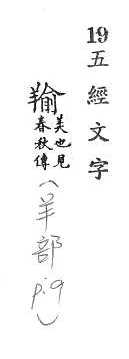 19五經文字
羭
美也見
春秋傳
(羊部 p.9)